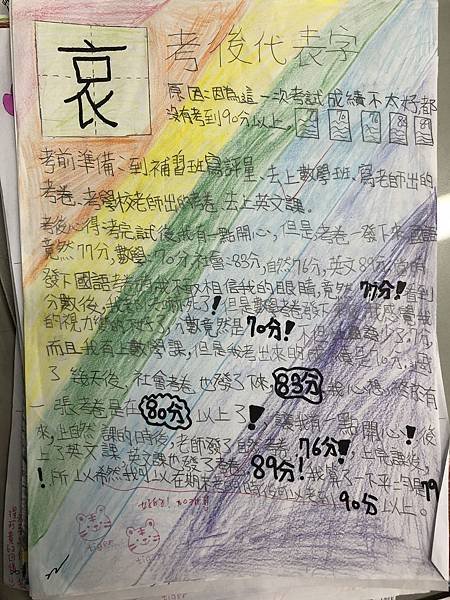 哀
考後代表字
原因:因為這一次考試成績不太好都
沒有考到90分以上。
考前準備:到補習班寫評量、去上數學班、寫老師出的
考卷、考學校老師出的考卷、去上英文課。
考後心得:考完試後我有一點開心,但是,考卷一發下來,國語
竟然77分,數學:70分社會:83分,自然76分,英文89分。
發下國語考卷,我不敢相信我的眼睛,竟然77分!看到
分數後,我嚇死了!但是數學考卷發下來
的視力 分數竟然是70分!
而且我有上數學課,但是 考出來的 70分,過
了幾天後,社會考卷也發了下來,83分我心想:終於有
一張考卷是在80分以上了!讓我有一點開心!後
來,上自然課的時候,老師發了自然考卷,76分!,上完課後,
上了英文課,英文課也發了考卷,89分!我算了一下平均是79
!所以希然我可以在期末考的時候可以考到90分以上。
tiger
tiger